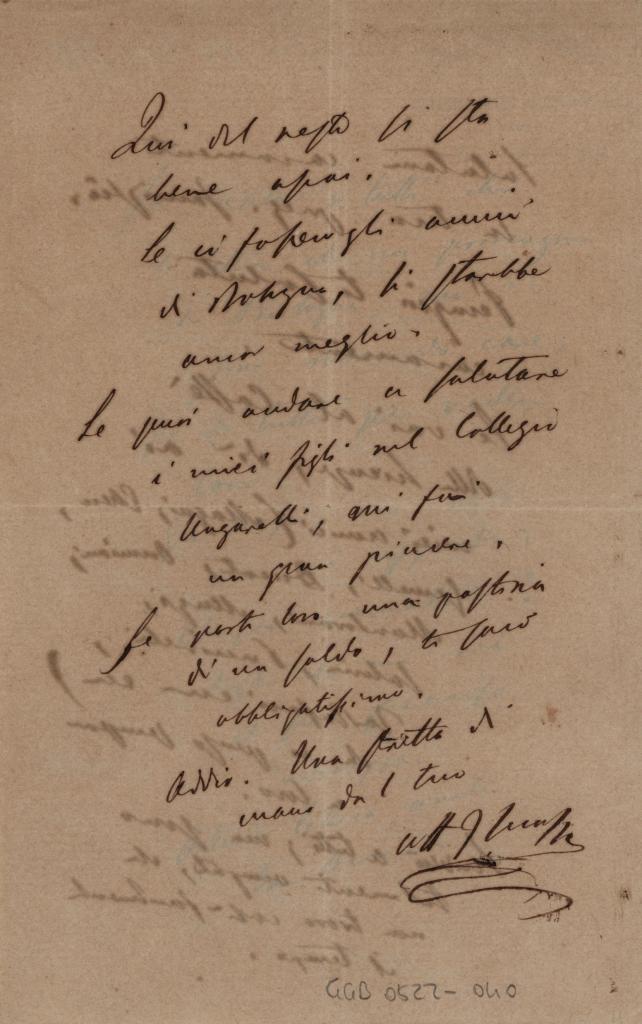 Qui del resto si sta
bene assai.
Se ci fossero gli amici
di Bologna, si starebbe
ancor meglio.
Se puoi andare a salutare
i miei figli nel Collegio
Ungarelli, mi fai
un gran piacere.
Se porti loro una pastina
di un soldo, ti sarò
obbligatissimo.
Addio. Una stretta di
mano dal tuo
aff
GGB 0522-040